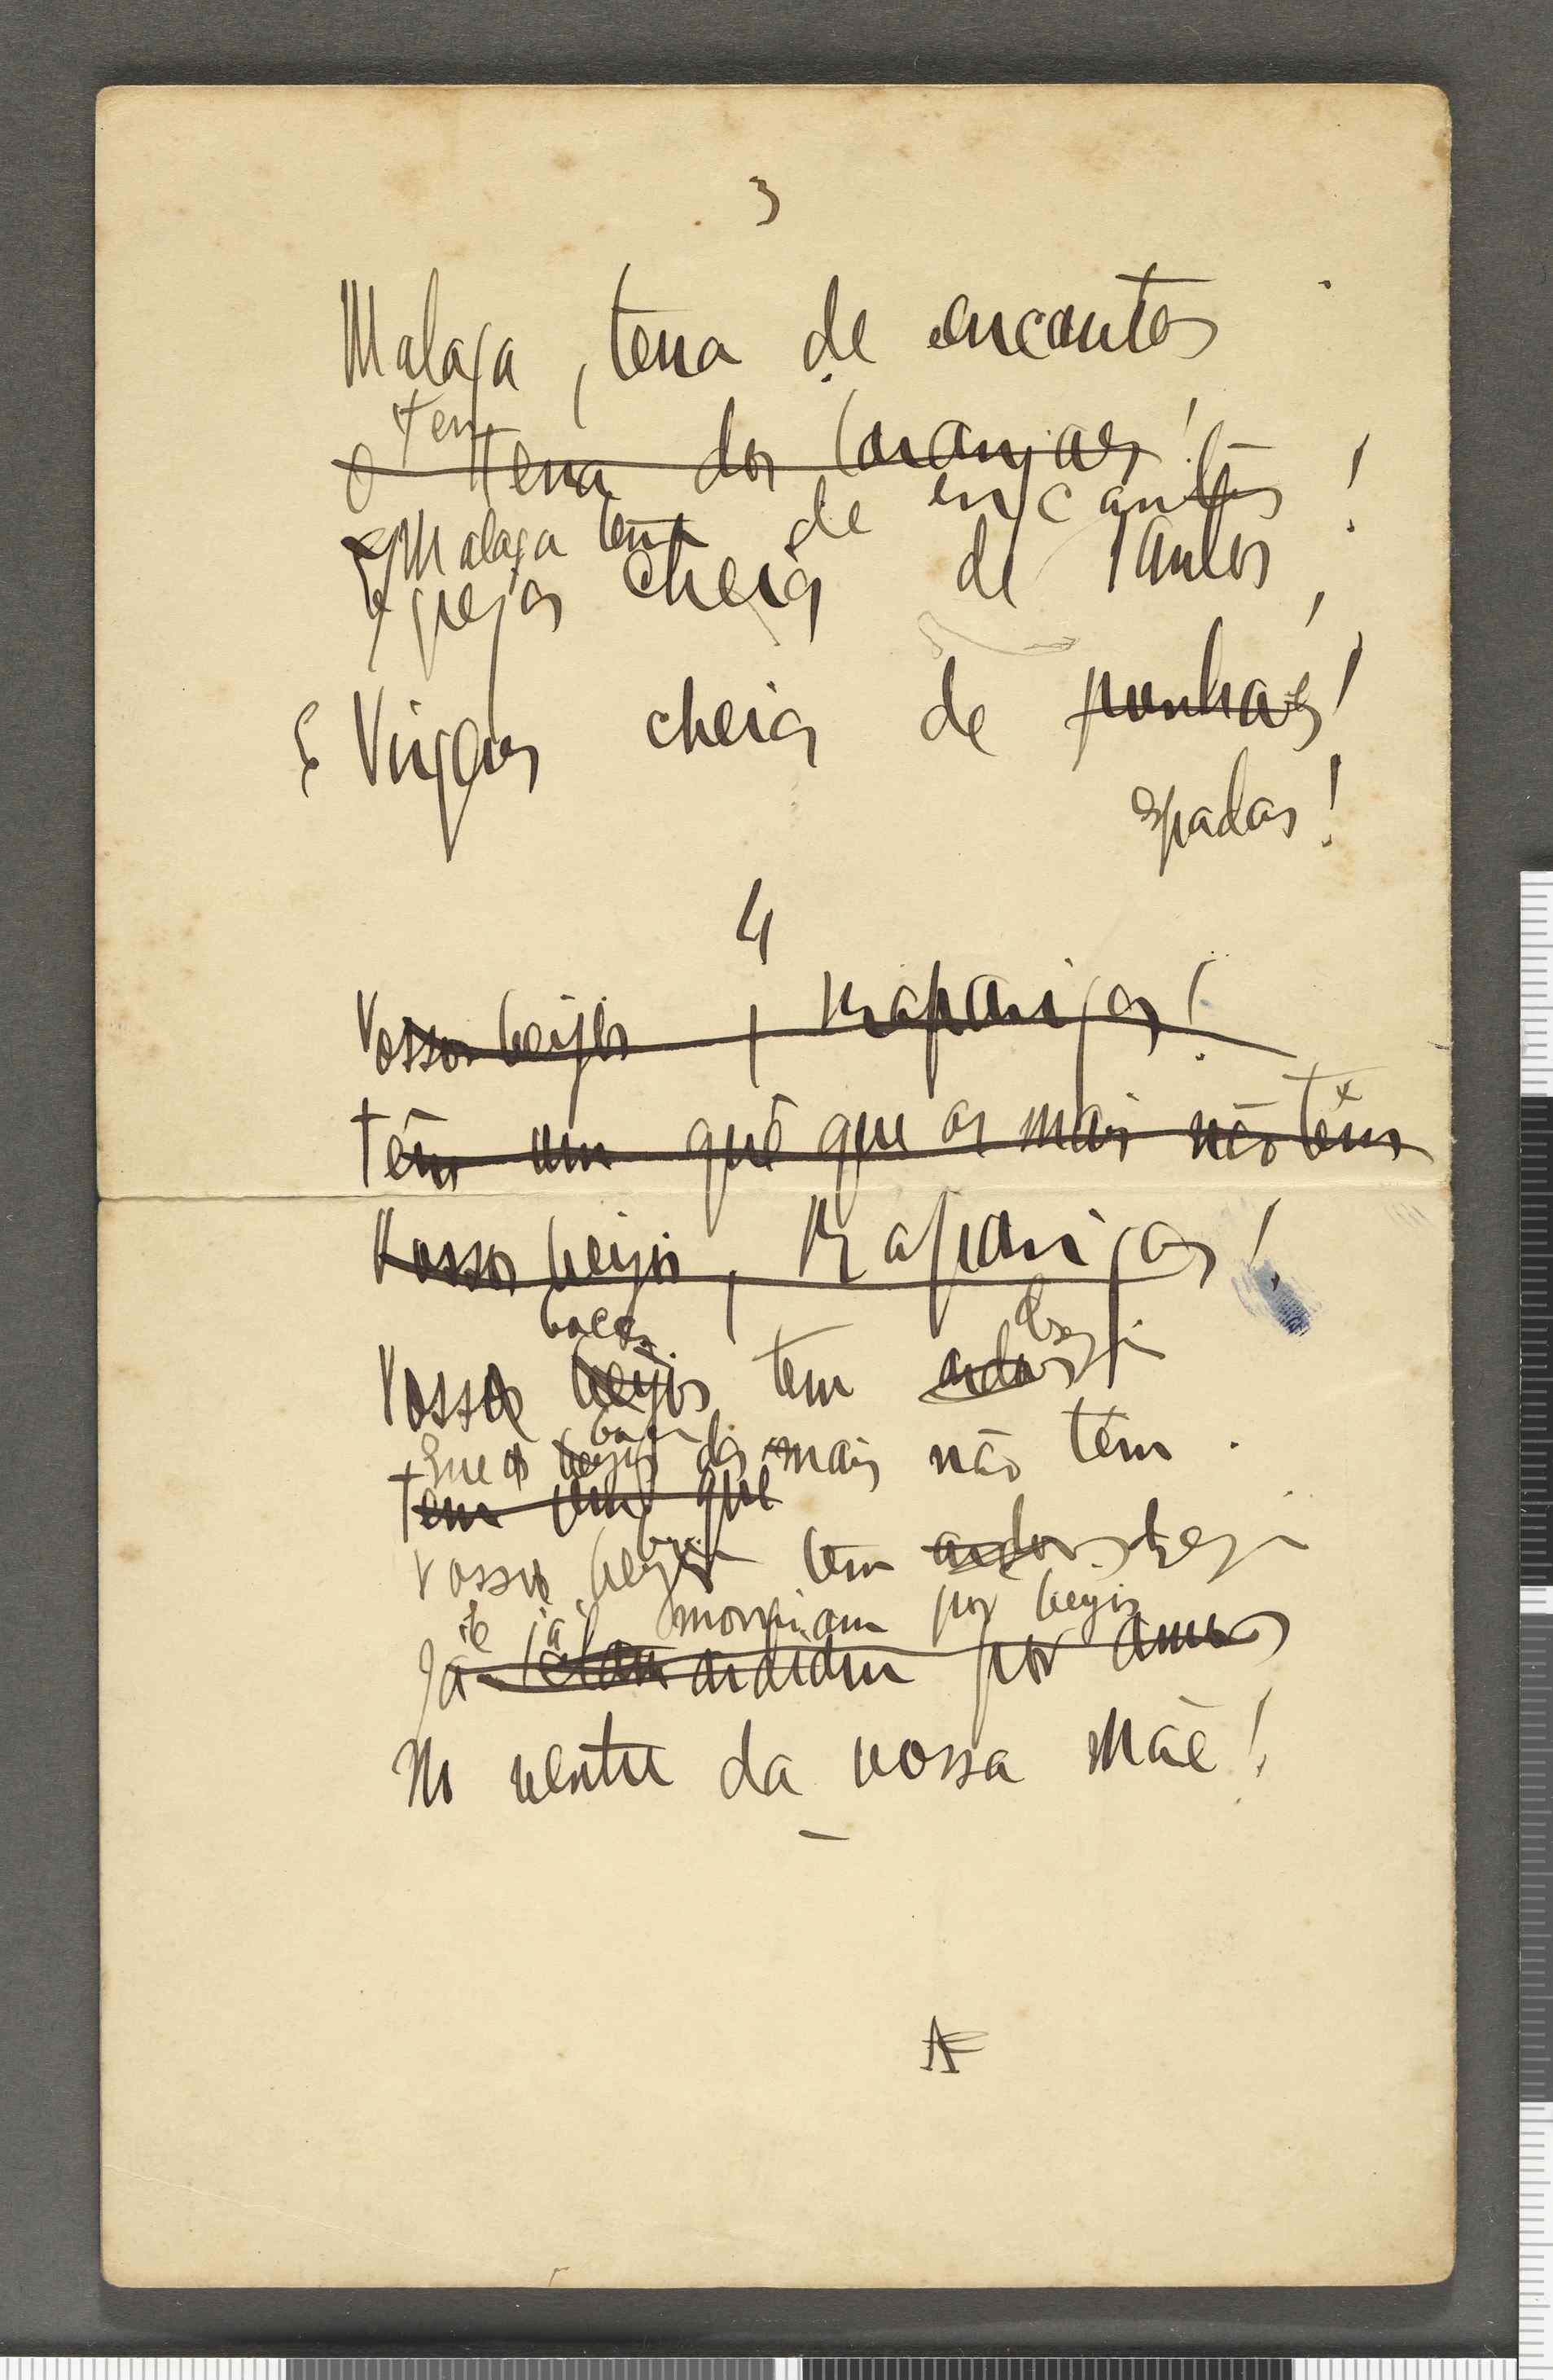 3
Malaga, terra de encantos
O terra dos laranjaes!
Malaga terra de encantos!
Egrejas cheias de Santos,
E Virgens cheias de punhaes!
espadas!
4
Vossos beijos, Raparigas!
Têm um quê que os mais não têm
Vossos beijos, Raparigas!
boca
Vossa beijos tem ardor
Que os beijos das mais não têm.
Tem um quê
Vossos beijos tem ardor
já morriam por beijos
Já ardiam por amor
No ventre da vossa Mãe!